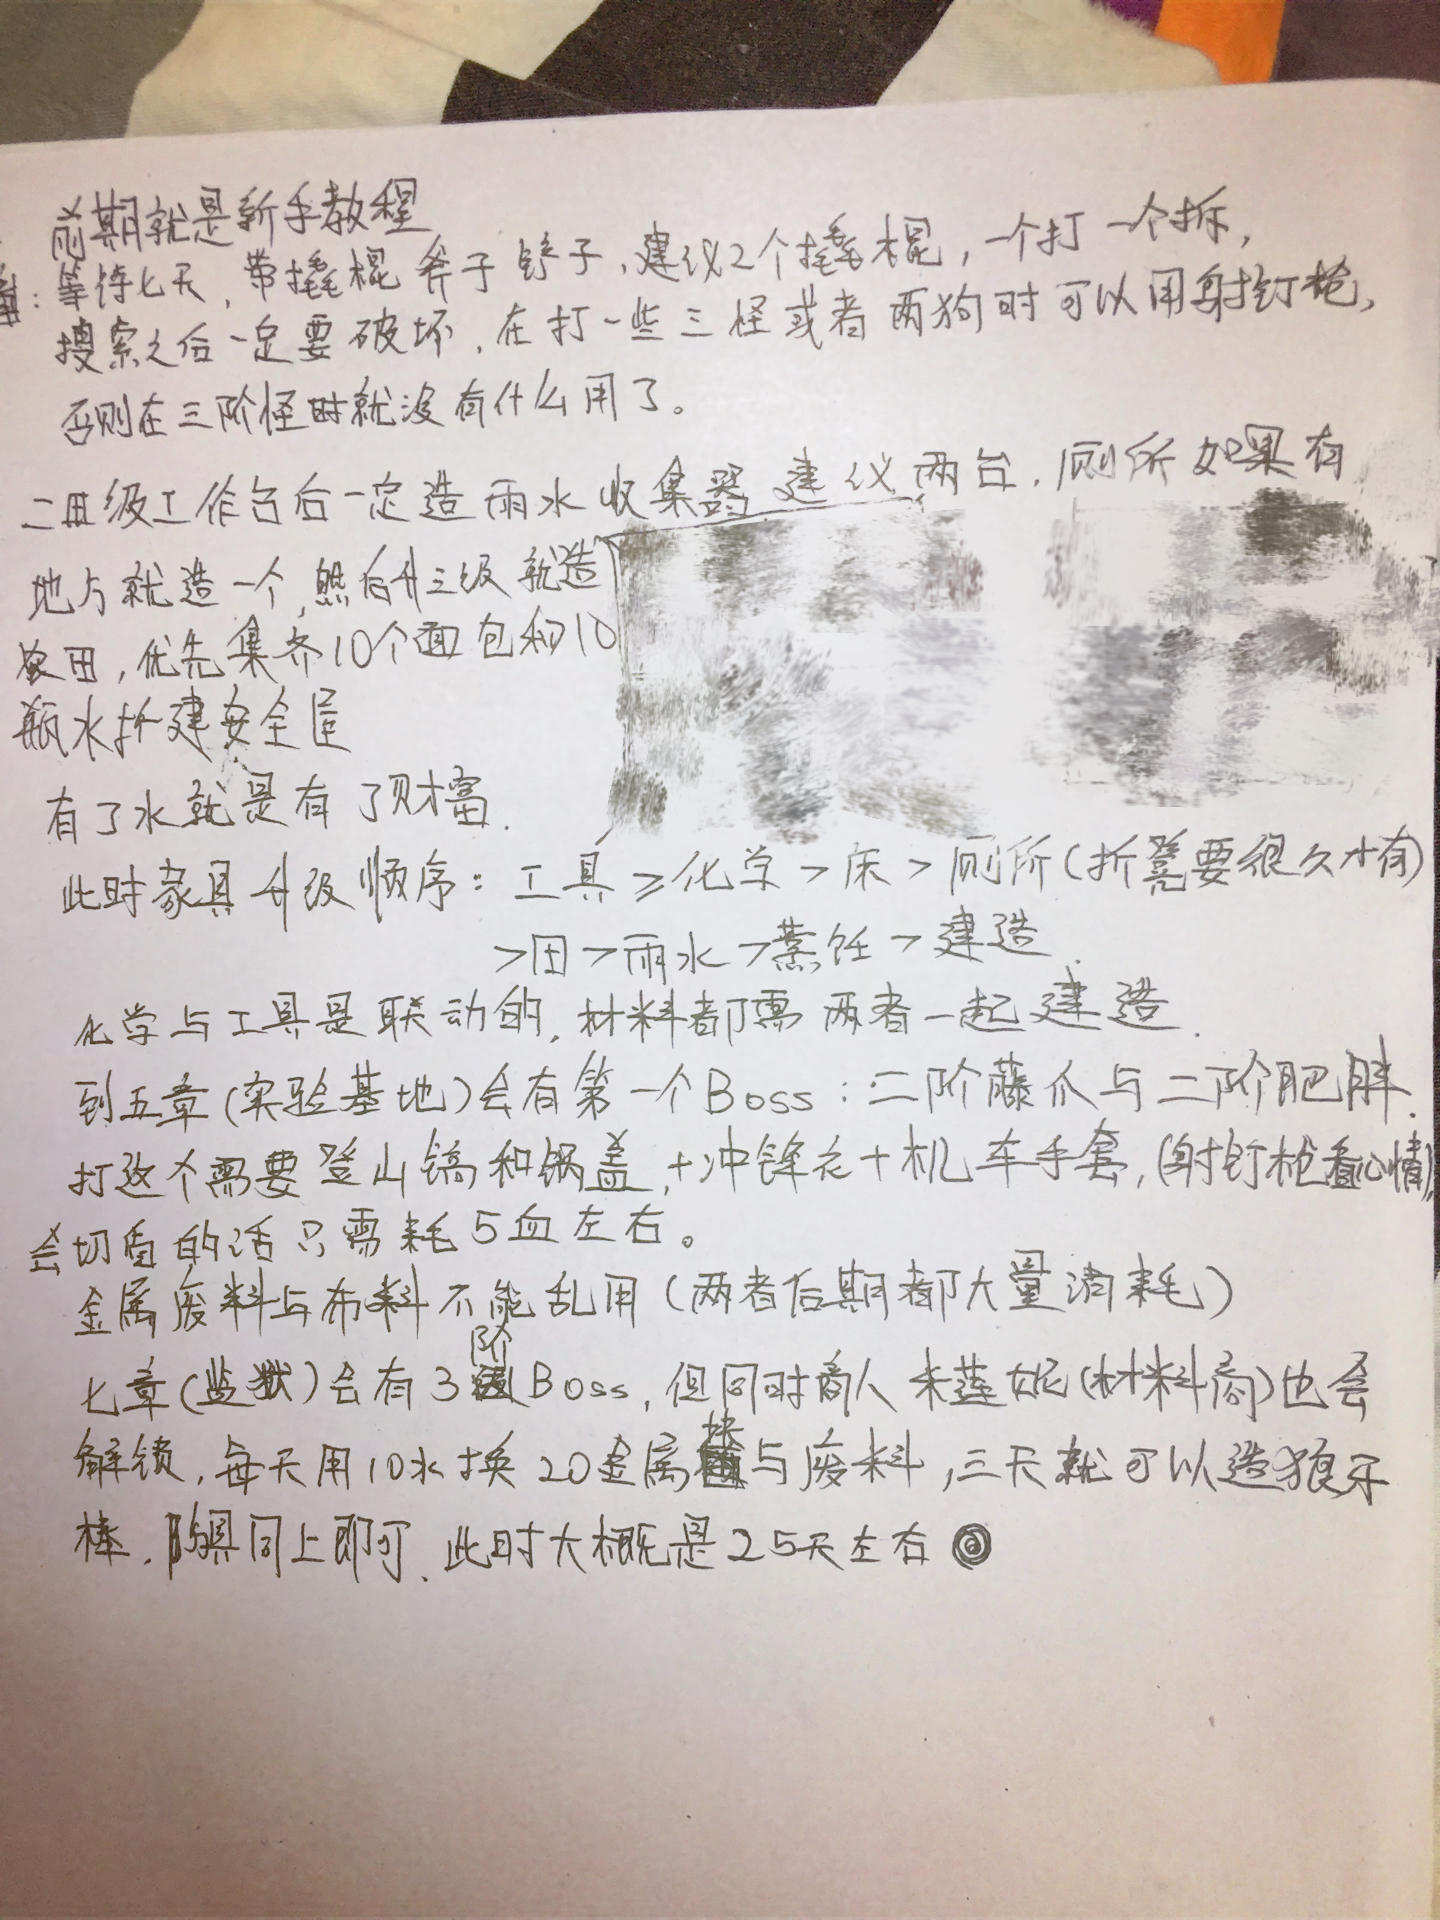 前期就是新手教程
：等待七天，带撬棍斧子铲子，建议2个撬棍，一个打一个拆，
搜索之后一定要破坏，在打一些三怪或者两狗时可以用射钉枪，
否则在三阶怪时就没有什么用了。
级工作台后一定造雨水收集器建议两台，厕所如果有
地方就造一个，然后升三级就造
农田，优先集齐10个面包和10
瓶水扩建安全屋
有了水就是有了财富.
此时家具升级顺序：工具≥化学>床>厕所(折凳要很久才有)
>田>雨水>蒸饪>建造.
化学与工具是联动的，材料都需两者一起建造.
到五章(实验基地)会有第一个Boss：二阶藤爪与二阶肥胖.
打这个需要登山镐和锅盖，+冲锋衣+机车手套，(射钉枪看心情)，
会切盾的话只需耗5血左右。
金属废料与布料不能乱用(两者后期都大量消耗)
七章(监狱)会有3阶Boss，但同时商人朱莲妮(材料商)也会
解锁，每天用10水换20金属块与废料，三天就可以造狼牙
棒.防具同上即可.此时大概是25天左右